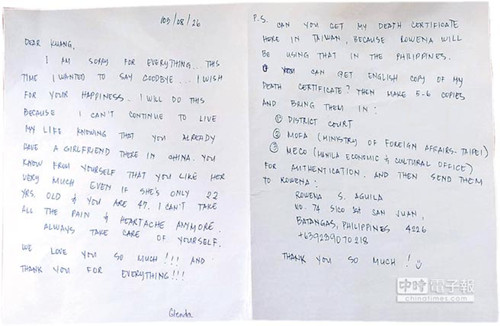 103/08/26
DEAR KUANG,
I AM SORRY FOR EVERYTHING... THIS
TIME I WANTED TO SAY GOODBYE... I WISH
FOR YOUR HAPPINESS. I WILL DO THIS
BECAUSE I CAN'T CONTINUE TO LIVE
MY LIFE KNOWING THAT YOU ALREADY
HAVE A GIRLFRIEND THERE IN CHINA. YOU
KNOW FROM YOURSELF THAT YOU LIKE HER
VERY MUCH EVEN IF SHE'S ONLY 22
YRS. OLD & YOU ARE 47. I CAN'T TAKE
ALL THE PAIN & HEARTACHE ANYMORE.
ALWAYS TAKE CARE OF YOURSELF.
WE LOVE YOU SO MUCH!!! AND
THANK YOU FOR EVERYTHING!!!
Glenda
P.S. CAN YOU GET MY DEATH CERTIFICATE
HERE IN TAIWAN, BECAUSE ROWENA WILL
BE USING THAT IN THE PHILIPPINES.
YOU CAN GET ENGLISH COPY OF MY
DEATH CERTIFICATE? THEN MAKE 5-6 COPIES
AND BRING THEM IN:
① DISTRICT COURT
② MOFA (MINISTRY OF FOREIGN AFFAIRS-TAIPEI)
③ MECO (MANILA ECONOMIC & CULTURAL OFFICE)
FOR AUTHENTICATION. AND THEN SEND THEM
TO ROWENA:
ROWENA S. AGUILA
NO. 74 SICO SAN JUAN,
BATANGAS, PHILIPPINES 4226
+639239070218
THANK YOU SO MUCH!
中時電子報
chinatimes.com